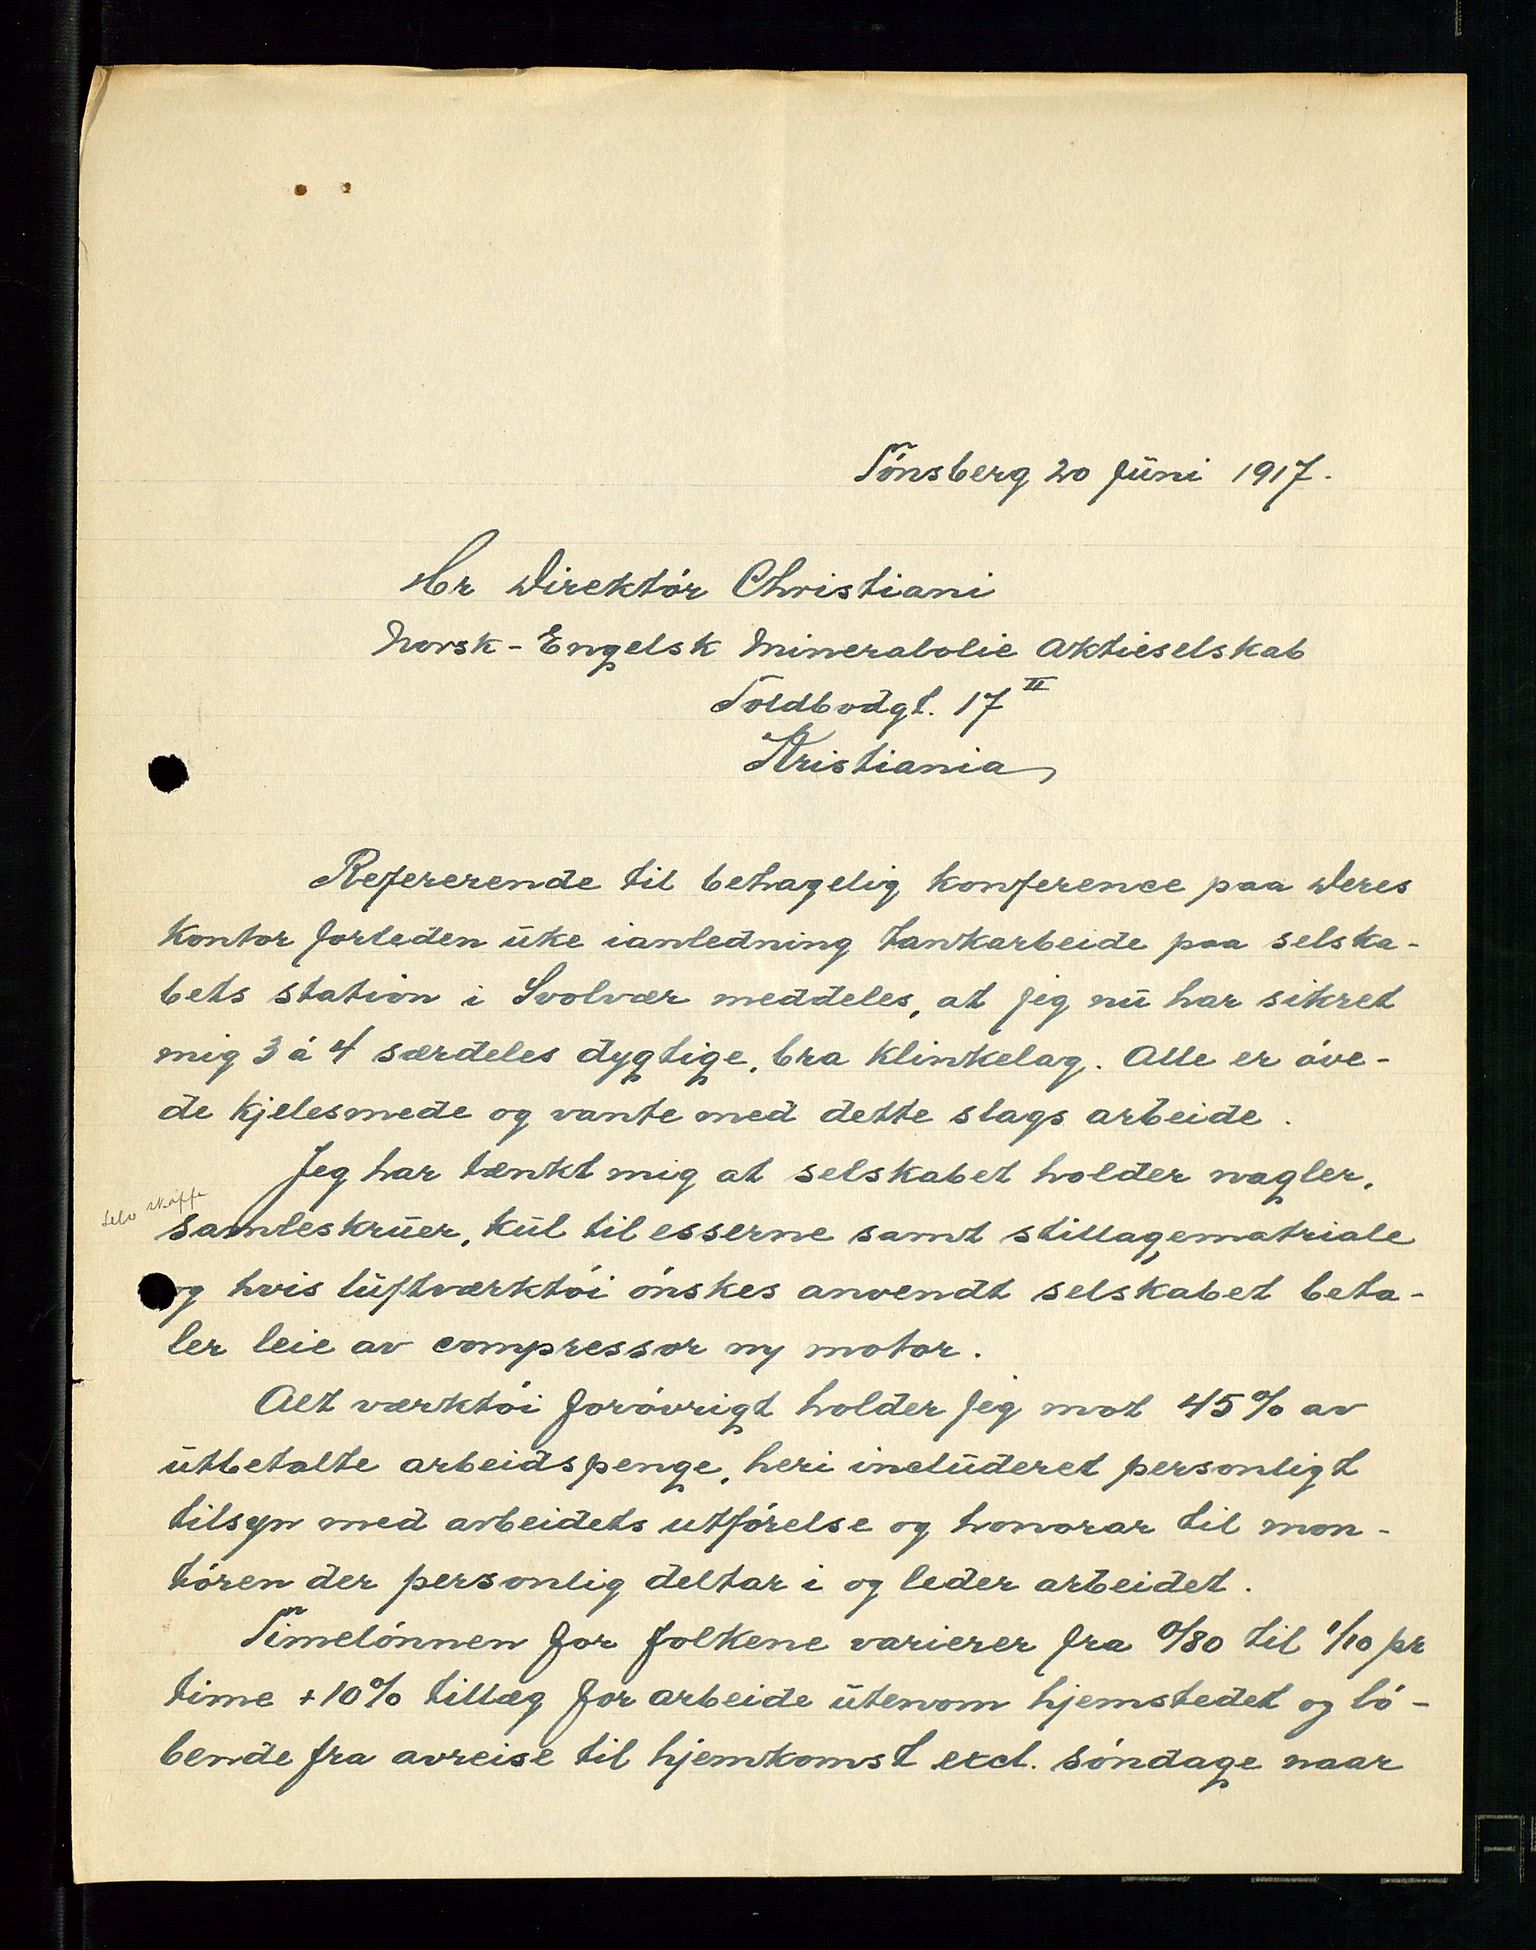 Tónsberg 20 Juni 1917.
Hr Direktór Christiani
Norsk-Engelsk Mineralolie Aktieselskab
Toldbodgt. 17 II
Kristiania
Refererende til behagelig konference paa Deres
kontor forleden uke ianledning tankarbeide paa selska-
bets station i Svolvær meddeles, at jeg nu har sikret
mig 3 á 4 særdeles dygtige, bra klinkelag. Alle er óve-
de kjelesmede og vante med dette slags arbeide.
Jeg har tænkt mig at selskabet holder nagler,
selv skaffe
samleskruer, kul til esserne samt stillagematriale
og hvis luftværktói ónskes anvendt selskabet beta-
ler leie av compressor og motor.
Alt værktói foróvrigt holder jeg mot 45% av
utbetalte arbeidspenge, heri includeret personligt
tilsyn med arbeidets utfórelse og honorar til mon-
tóren der personlig deltar i og leder arbeidet.
Timelónnen for folkene varierer fra 0/80 til 1/10 pr
time + 10% tillæg for arbeide utenom hjemstedet og ló-
bende fra avreise til hjemkomst excl. sóndage naar